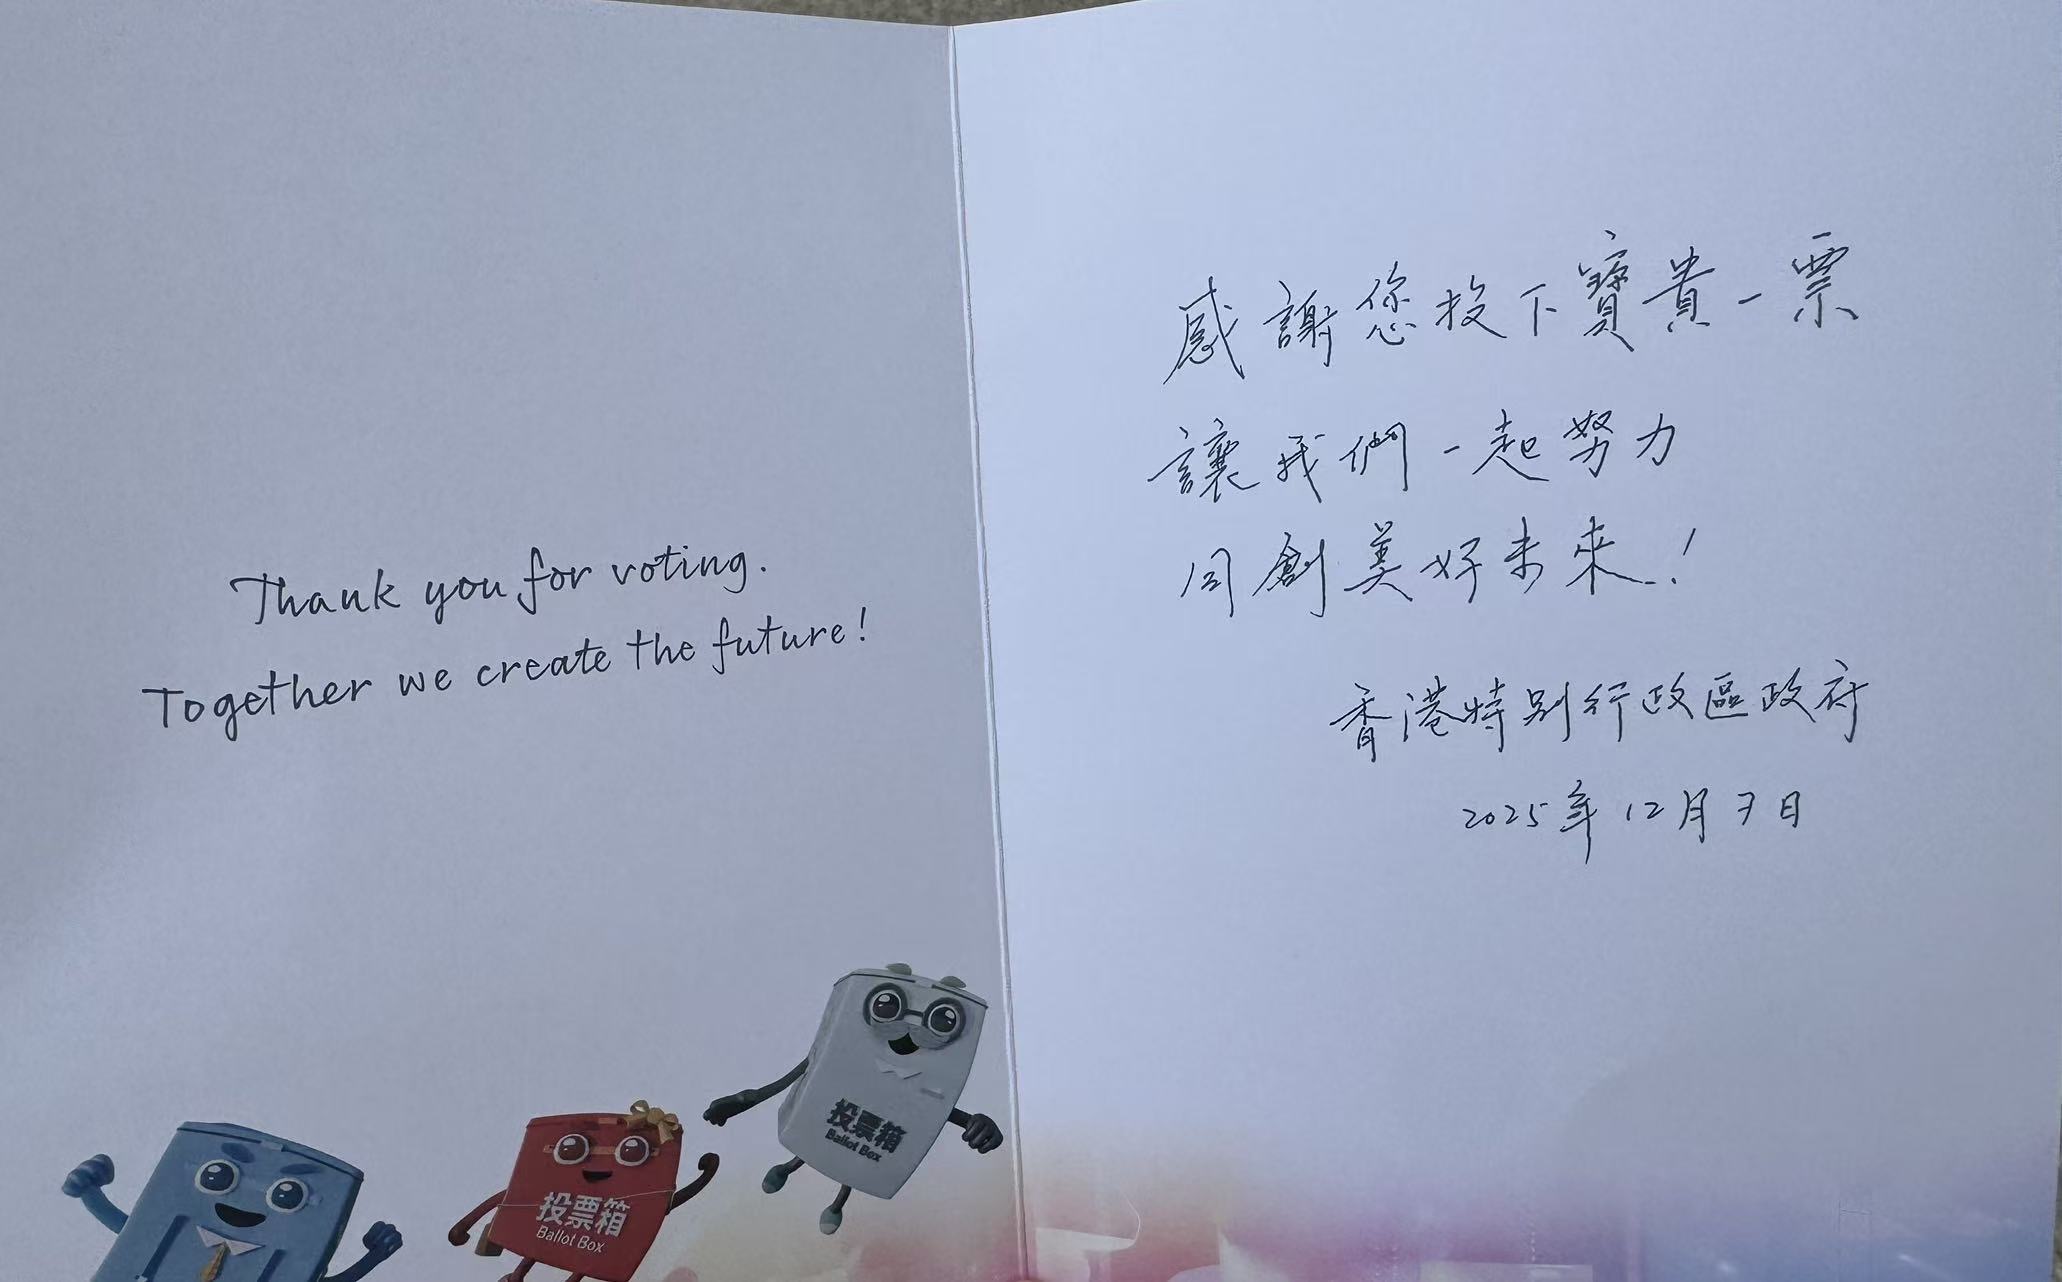 Thank you for voting.
Together we create the future!
投票箱
Ballot Box
投票箱
Ballot Box
感謝您投下寶貴一票
讓我們一起努力
同創美好未來！
香港特別行政區政府
2025年12月7日